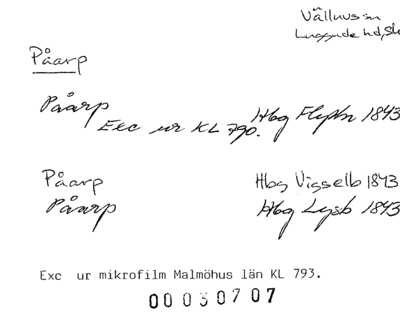 Välluvs:n
Luggude hd, Sk
Påarp
Påarp Hbg Flyttn 1843
Exc ur KL 790.
Påarp Hbg Vigselb 1843
Påarp Hbg Lysb 1843
Exc ur mikrofilm Malmöhus län KL 793.
00030707